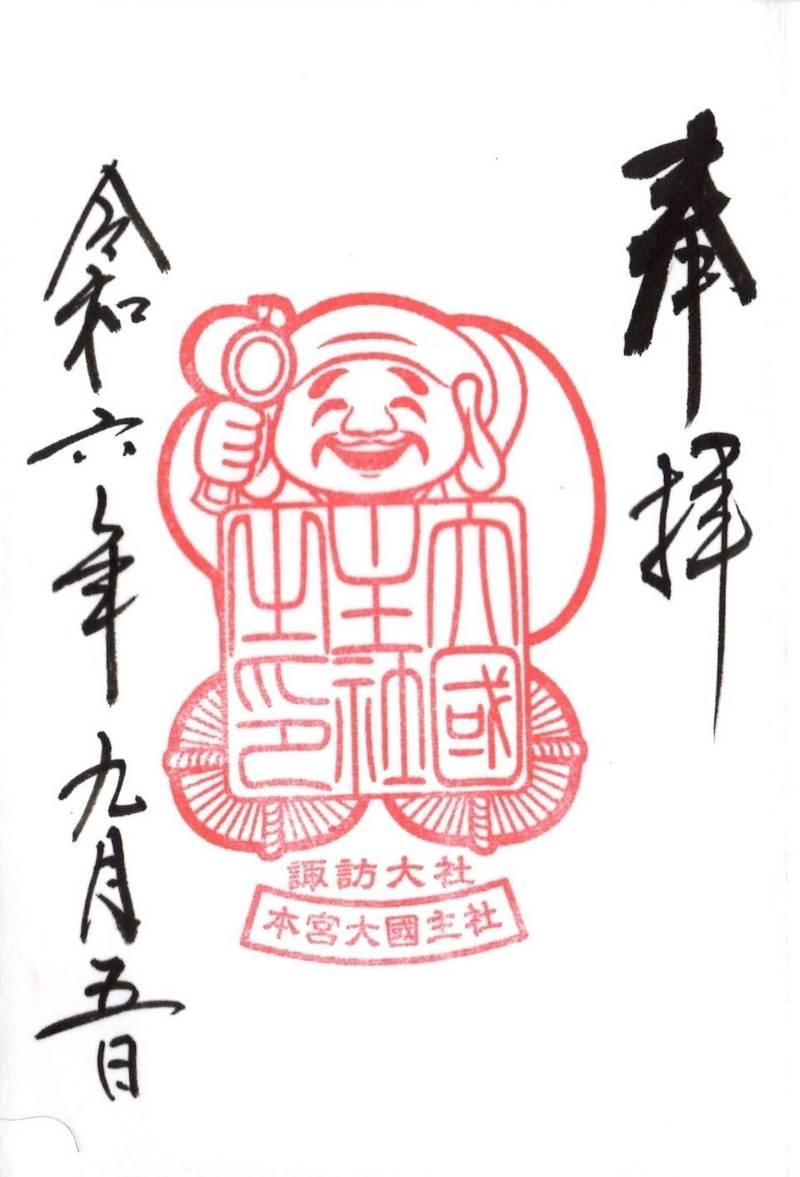 奉拝
大國
主社
之印
諏訪大社
本宮大國主社
令和六年九月五日